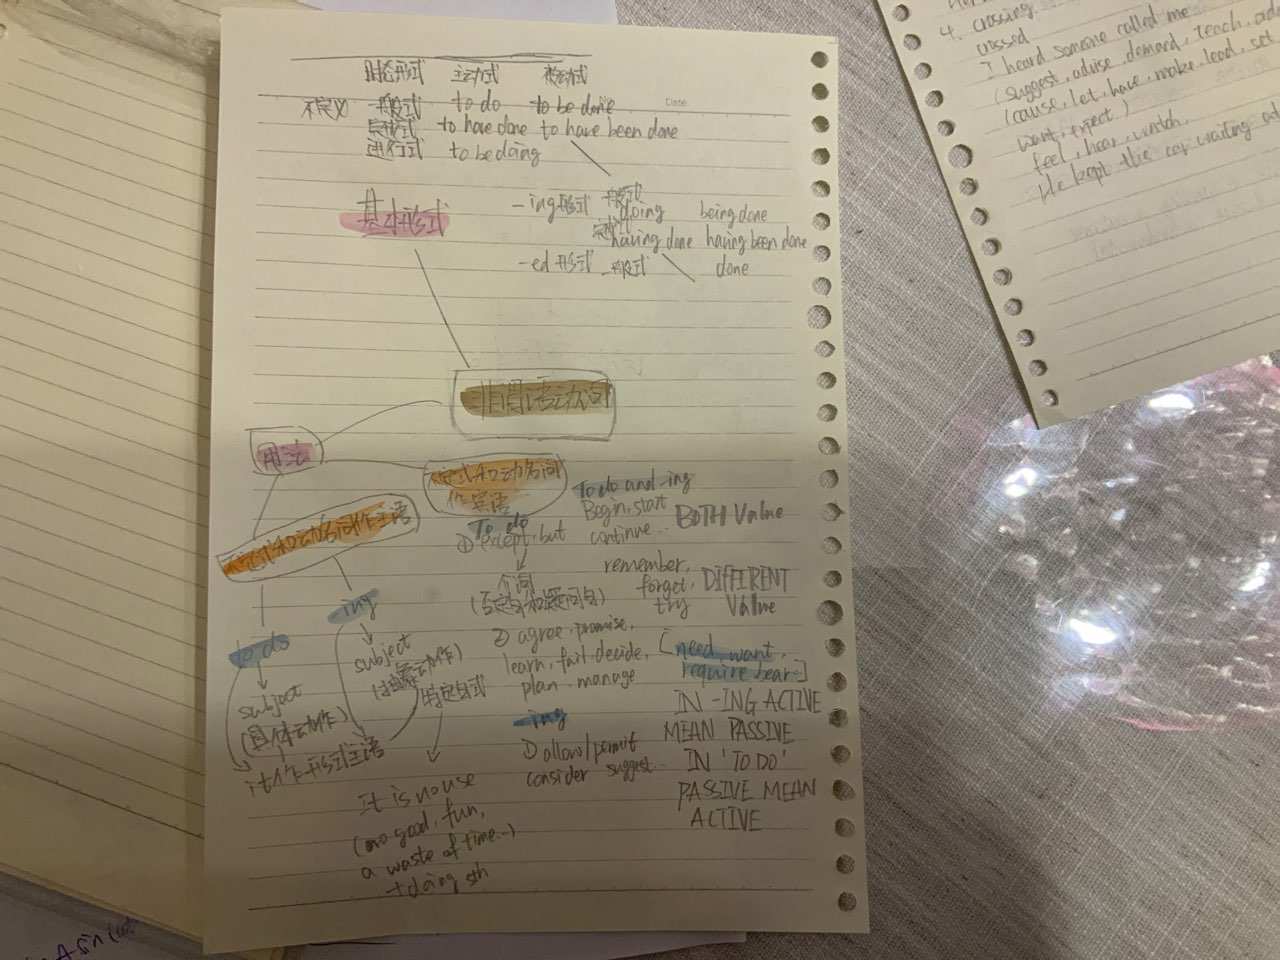 时态形式 主动式 被动式
不定义 一般式 to do to be done
Date
完成式 to have done to have been done
进行式 to be doing
基本形式
-ing形式 一般式 doing being done
完成式 having done having been done
-ed形式 一般式 done
非谓语动词
用法
不定式和动名词作主语
to do
subject
(具体动作)
it作形式主语
ing
subject
(抽象动作)
固定句式
It is no use
(no good, fun,
a waste of time...)
+doing sth
定式和动名词
作宾语
To do
① except, but
介词
(否定句和疑问句)
② agree, promise,
learn, fail, decide,
plan, manage
-ing
① allow/permit
consider suggest...
To do and -ing
Begin, start
continue... BOTH Value
remember,
forget, DIFFIRENT
try Value
[need, want,
require, bear]
IN -ING ACTIVE
MEAN PASSIVE
IN 'TO DO'
PASSIVE MEAN
ACTIVE
4. crossing
crossed
I heard someone called me
(suggest, advise, demand, teach,
(cause, let, have, make, lead, set
want, expect)
feel, hear, watch,
He kept the car waiting at